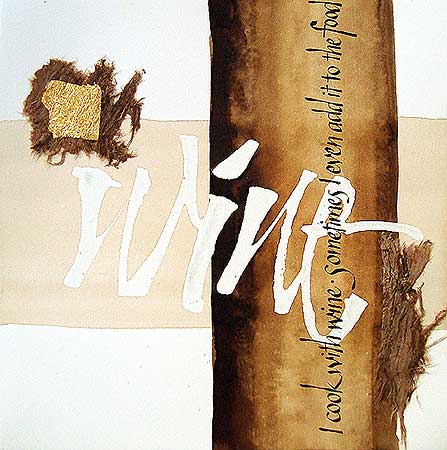 wine
I cook with wine · sometimes I even add it to the food